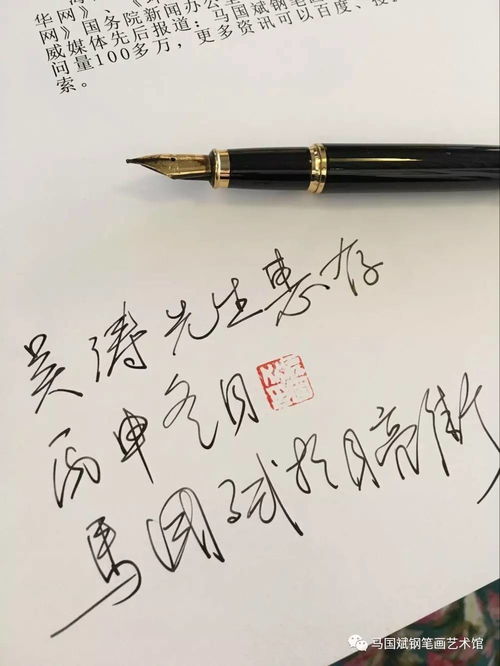 华网》、《
网》国务院新闻办公室
威媒体先后报道：马国斌钢笔画
问量100多万，更多资讯可以百度、搜
索。
吴涛先生惠存
丙申冬月
馬國斌于月亮街
马国斌钢笔画艺术馆